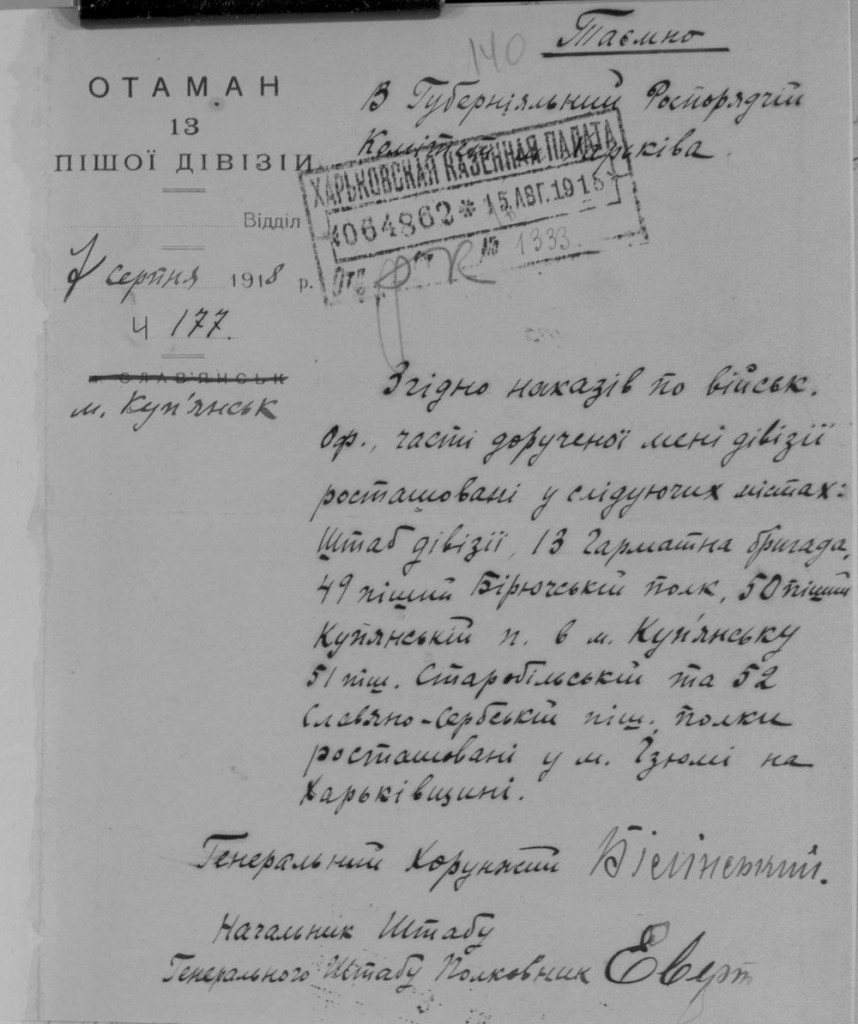 140
Таємно
ОТАМАН
13
ПІШОЇ ДІВІЗІИ
Відділ
7 серпня 1918 р.
Ч 177.
м. СЛАВ'ЯНСЬК
м. Куп'янськ
В Губерніяльний Роспорядчій
Комітет м. Харьківа.
ХАРЬКОВСКАЯ КАЗЕННАЯ ПАЛАТА
*064862* 15 АВГ. 1918
Отд. № 1333
Згідно наказів по військ.
Оф., часті дорученої мені дівізії
росташовані у слідуючих містах:
Штаб дівізії, 13 Гарматна бригада,
49 піший Бірючській полк, 50 піший
Купянській п. в м. Куп'янську
51 піш. Старобільській та 52
Славяно-Сербській піш. полки
росташовані у м. Ізюмі на
Харьківщині.
Генеральний Хорунжий Білінський.
Начальник Штабу
Генерального Штабу Полковник Еверт